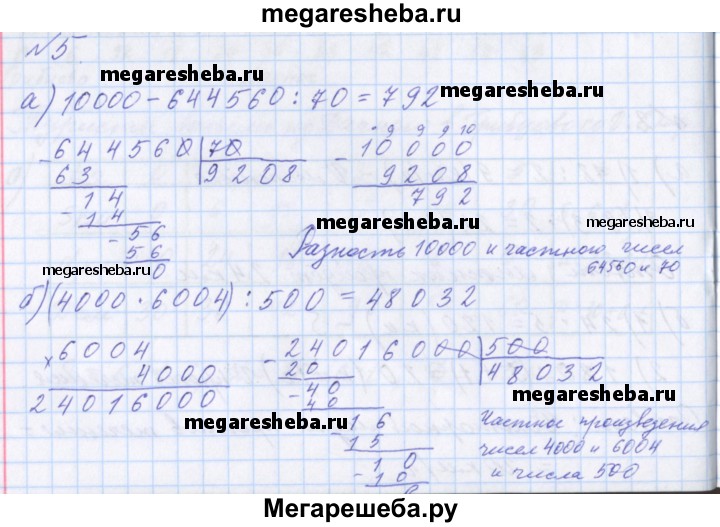 megaresheba.ru
№5
megaresheba.ru megaresheba.ru
а) 10000 - 644560 : 70 = 792
644560 | 70
63 9208
- 14
14
- 56
56
0
9 9 9 10
- 10000
9208
792
megaresheba.ru megaresheba.ru
Разность 10000 и частного чисел
64560 и 70
megaresheba.ru
б) (4000 · 6004) : 500 = 48032
× 6004
4000
24016000
- 24016000 | 500
20 48032
- 40
40
- 16
15
- 10
- 10
0
megaresheba.ru megaresheba.ru
Частное произведения
чисел 4000 и 6004
и числа 500
Мегарешеба.ру